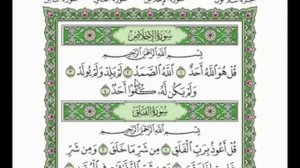 سُورَةُ الإِخْلَاصِ
بِسْمِ اللَّهِ الرَّحْمَٰنِ الرَّحِيمِ
قُلْ هُوَ اللَّهُ أَحَدٌ ۝ اللَّهُ الصَّمَدُ ۝ لَمْ يَلِدْ وَلَمْ يُولَدْ ۝
وَلَمْ يَكُن لَّهُ كُفُوًا أَحَدٌ ۝
سُورَةُ الفَلَقِ
بِسْمِ اللَّهِ الرَّحْمَٰنِ الرَّحِيمِ
قُلْ أَعُوذُ بِرَبِّ الْفَلَقِ ۝ مِن شَرِّ مَا خَلَقَ ۝ وَمِن شَرِّ